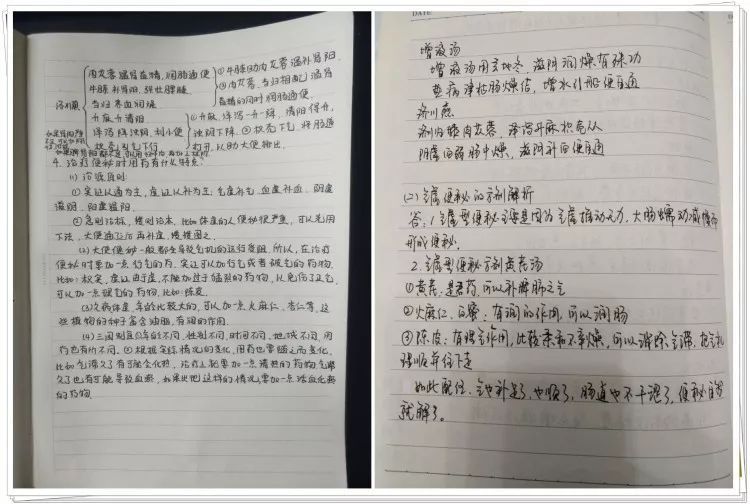 济川煎
肉苁蓉 温肾益精,润肠通便
牛膝 补肾阳,强壮腰膝
当归 养血润燥
升麻 升清阳
泽泻 降浊阴,利小便
枳壳 下气
①牛膝助肉苁蓉温补肾阳
②肉苁蓉、当归相配,温肾
益精的同时润肠通便
①升麻、泽泻一升一降,清阳得升,
浊阴下降。②枳壳下气,将肠道
打开,以助大便排出。
4. 治疗便秘时用药有什么特点?
(1) 治城原则
①实证以通为主,虚证以补为主:气虚补气,血虚补血,阴虚
滋阴,阳虚温阳
②急则治标,缓则治本,比如体虚的人便秘很严重,可以先用
下法,大便通了后再补虚,慢慢图之。
(2)大便便秘一般都会导致气机的运行受阻,所以,在治疗
便秘时要加一点行气的药。实证可以加行气或者破气的药物,
比如:枳实,虚证由于虚,不能加过于猛烈的药物,以免伤了正气,
可以加一点缓气的药物,比如:陈皮。
(3)久病体虚,年龄比较大的,可以加一点火麻仁、杏仁等,这
些植物的种子富含油脂,有润的作用。
(4)三因制宜:年龄不同,性别不同,时间不同,地域不同,用
药也有所不同。①根据实际情况的变化,用药也要随之而变化,
比如气滞久了有可能会化热,治疗上就要加一点清热的药物,气滞
久了也有可能导致血瘀,如果出现这样的情况,要加一点活血化瘀
的药物
增液汤
增液汤用玄地冬,滋阴润燥有殊功
热病津枯肠燥结,增水行船便自通
济川煎
济川归膝肉苁蓉,泽泻升麻枳壳从
阴虚血弱肠中燥,滋阴补血便自通
(2)气虚便秘的方剂解析
答:1.气虚型便秘主要是因为气虚推动无力,大肠蠕动减慢而
形成便秘。
2.气虚型便秘方剂黄芪汤
①黄芪:是君药,可以补脾肺之气
②火麻仁、白蜜:有润的作用,可以润肠
③陈皮:有理气作用,比较柔和不辛燥,可以消除气滞,把气机
理顺并往下走
如此配伍,气也补足了,也顺了,肠道也不干涩了,便秘自然
就解了。